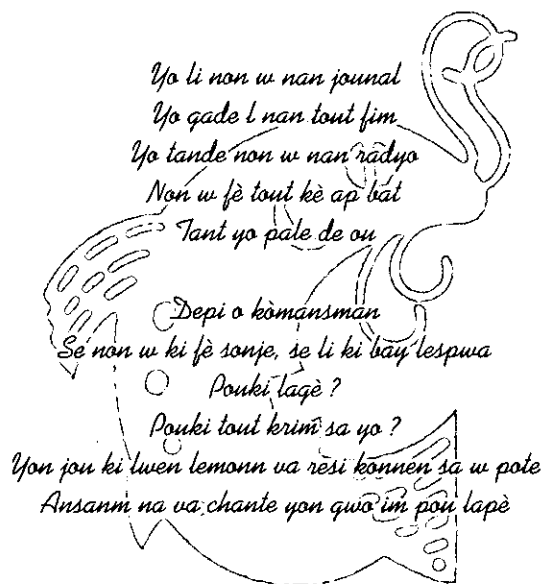 Yo li non w nan jounal
Yo gade l nan tout fim
Yo tande non w nan radyo
Non w fè tout kè ap bat
Tant yo pale de ou
Depi o kòmansman
Se non w ki fè sonje, se li ki bay lespwa
Pouki lagè ?
Pouki tout krim sa yo ?
Yon jou ki lwen lemonn va rèsi konnen sa w pote
Ansanm na va chante yon gwo im pou lapè